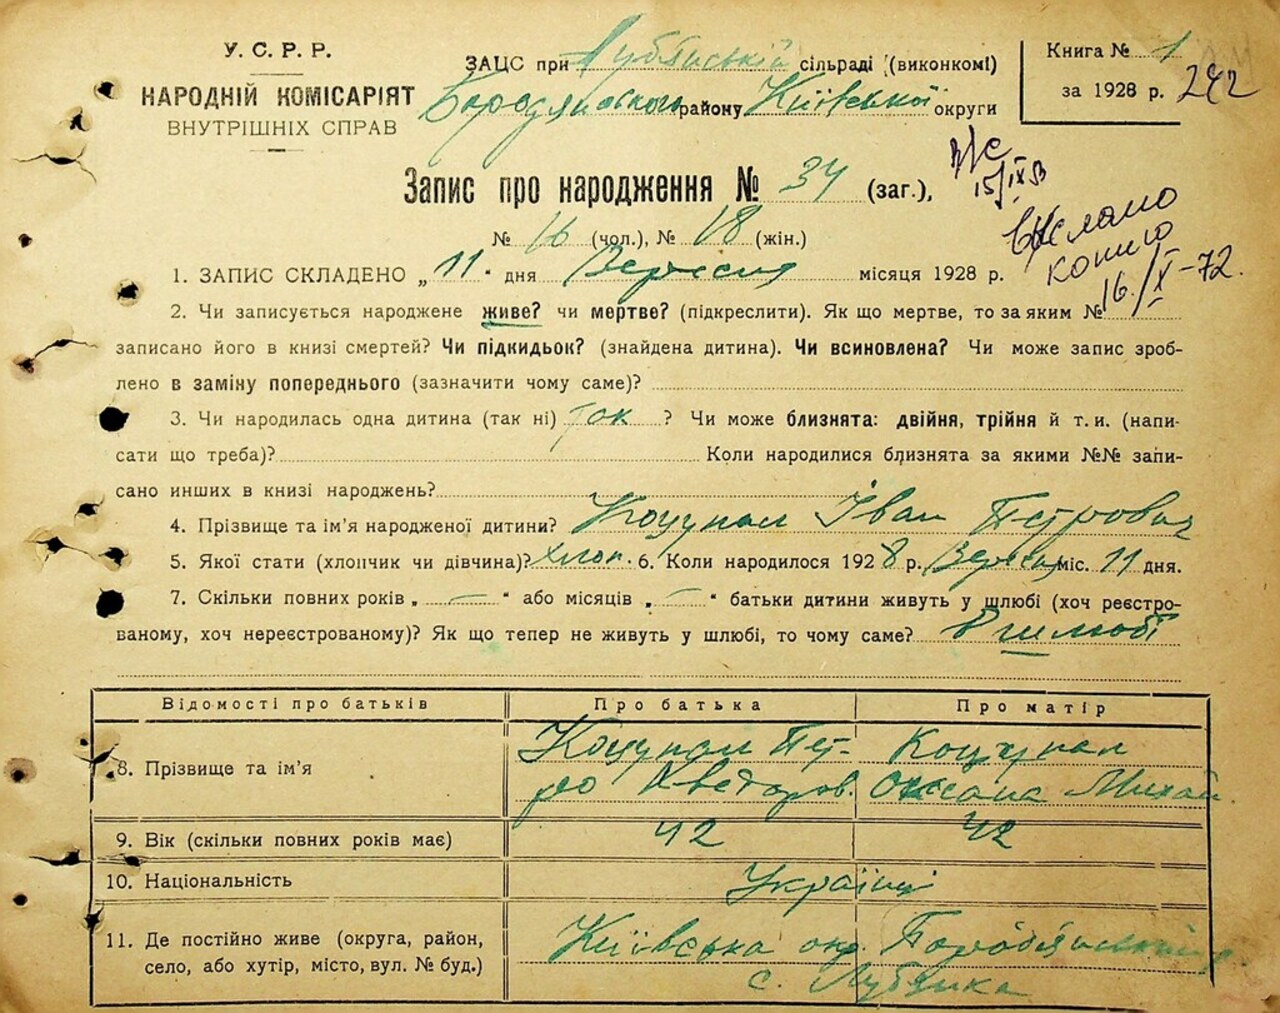 У. С. Р. Р.
НАРОДНІЙ КОМІСАРІЯТ
ВНУТРІШНІХ СПРАВ
ЗАЦС при Лубянській сільраді (виконкомі)
Бородянського району Київської округи
Книга № 1
за 1928 р. 242
Запис про народження № 34 (заг.),
№ 16 (чол.), № 18 (жін.)
15/IX 53
Вислано
копию
16/X-72.
1. ЗАПИС СКЛАДЕНО „11" дня Вересня місяця 1928 р.
2. Чи записується народжене живе? чи мертве? (підкреслити). Як що мертве, то за яким №
записано його в книзі смертей? Чи підкидьок? (знайдена дитина). Чи всиновлена? Чи може запис зроб-
лено в заміну попереднього (зазначити чому саме)?
3. Чи народилась одна дитина (так ні) так ? Чи може близнята: двійня, трійня й т. и. (напи-
сати що треба)? Коли народилися близнята за якими №№ запи-
сано инших в книзі народжень?
4. Прізвище та ім'я народженої дитини? Коцупал Іван Петрович
5. Якої стати (хлопчик чи дівчина)? хлоп. 6. Коли народилося 1928 р. Вересня міс. 11 дня.
7. Скільки повних років „ — " або місяців „ — " батьки дитини живуть у шлюбі (хоч реєстро-
ваному, хоч нереєстрованому)? Як що тепер не живуть у шлюбі, то чому саме? В шлюбі
Відомості про батьків Про батька Про матір
8. Прізвище та ім'я Коцупал Пет- Коцупал
ро Оксана Михай.
9. Вік (скільки повних років має) 42 42
10. Національність Українці
11. Де постійно живе (округа, район, Київська окр.
село, або хутір, місто, вул. № буд.) с. Лубянка